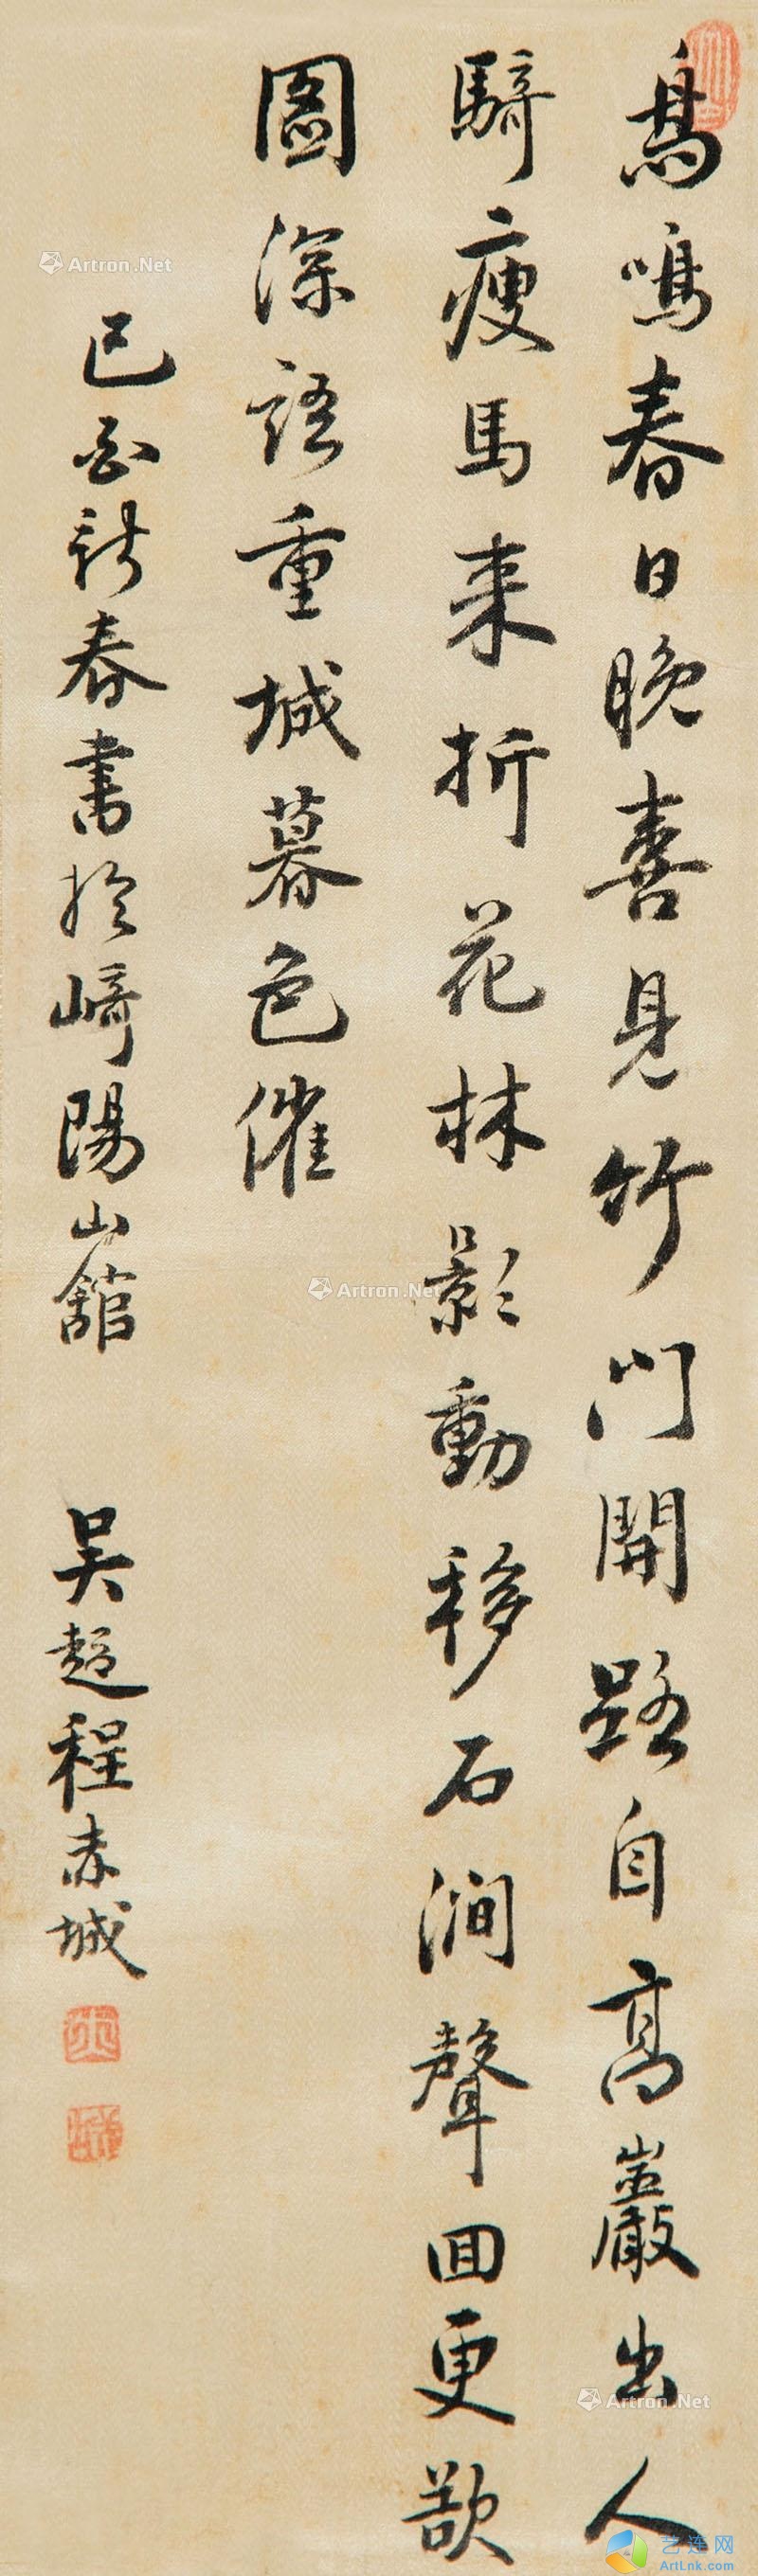 鳥鳴春日晚喜見竹門開路自高巖出人
騎瘦馬来折花林影動移石澗聲回更欲
圖深語重城暮色催
己酉新春書於崎陽山館
吳趨程赤城
Artron.Net
Artron.Net
Artron.Net
艺连网
ArtLnk.com